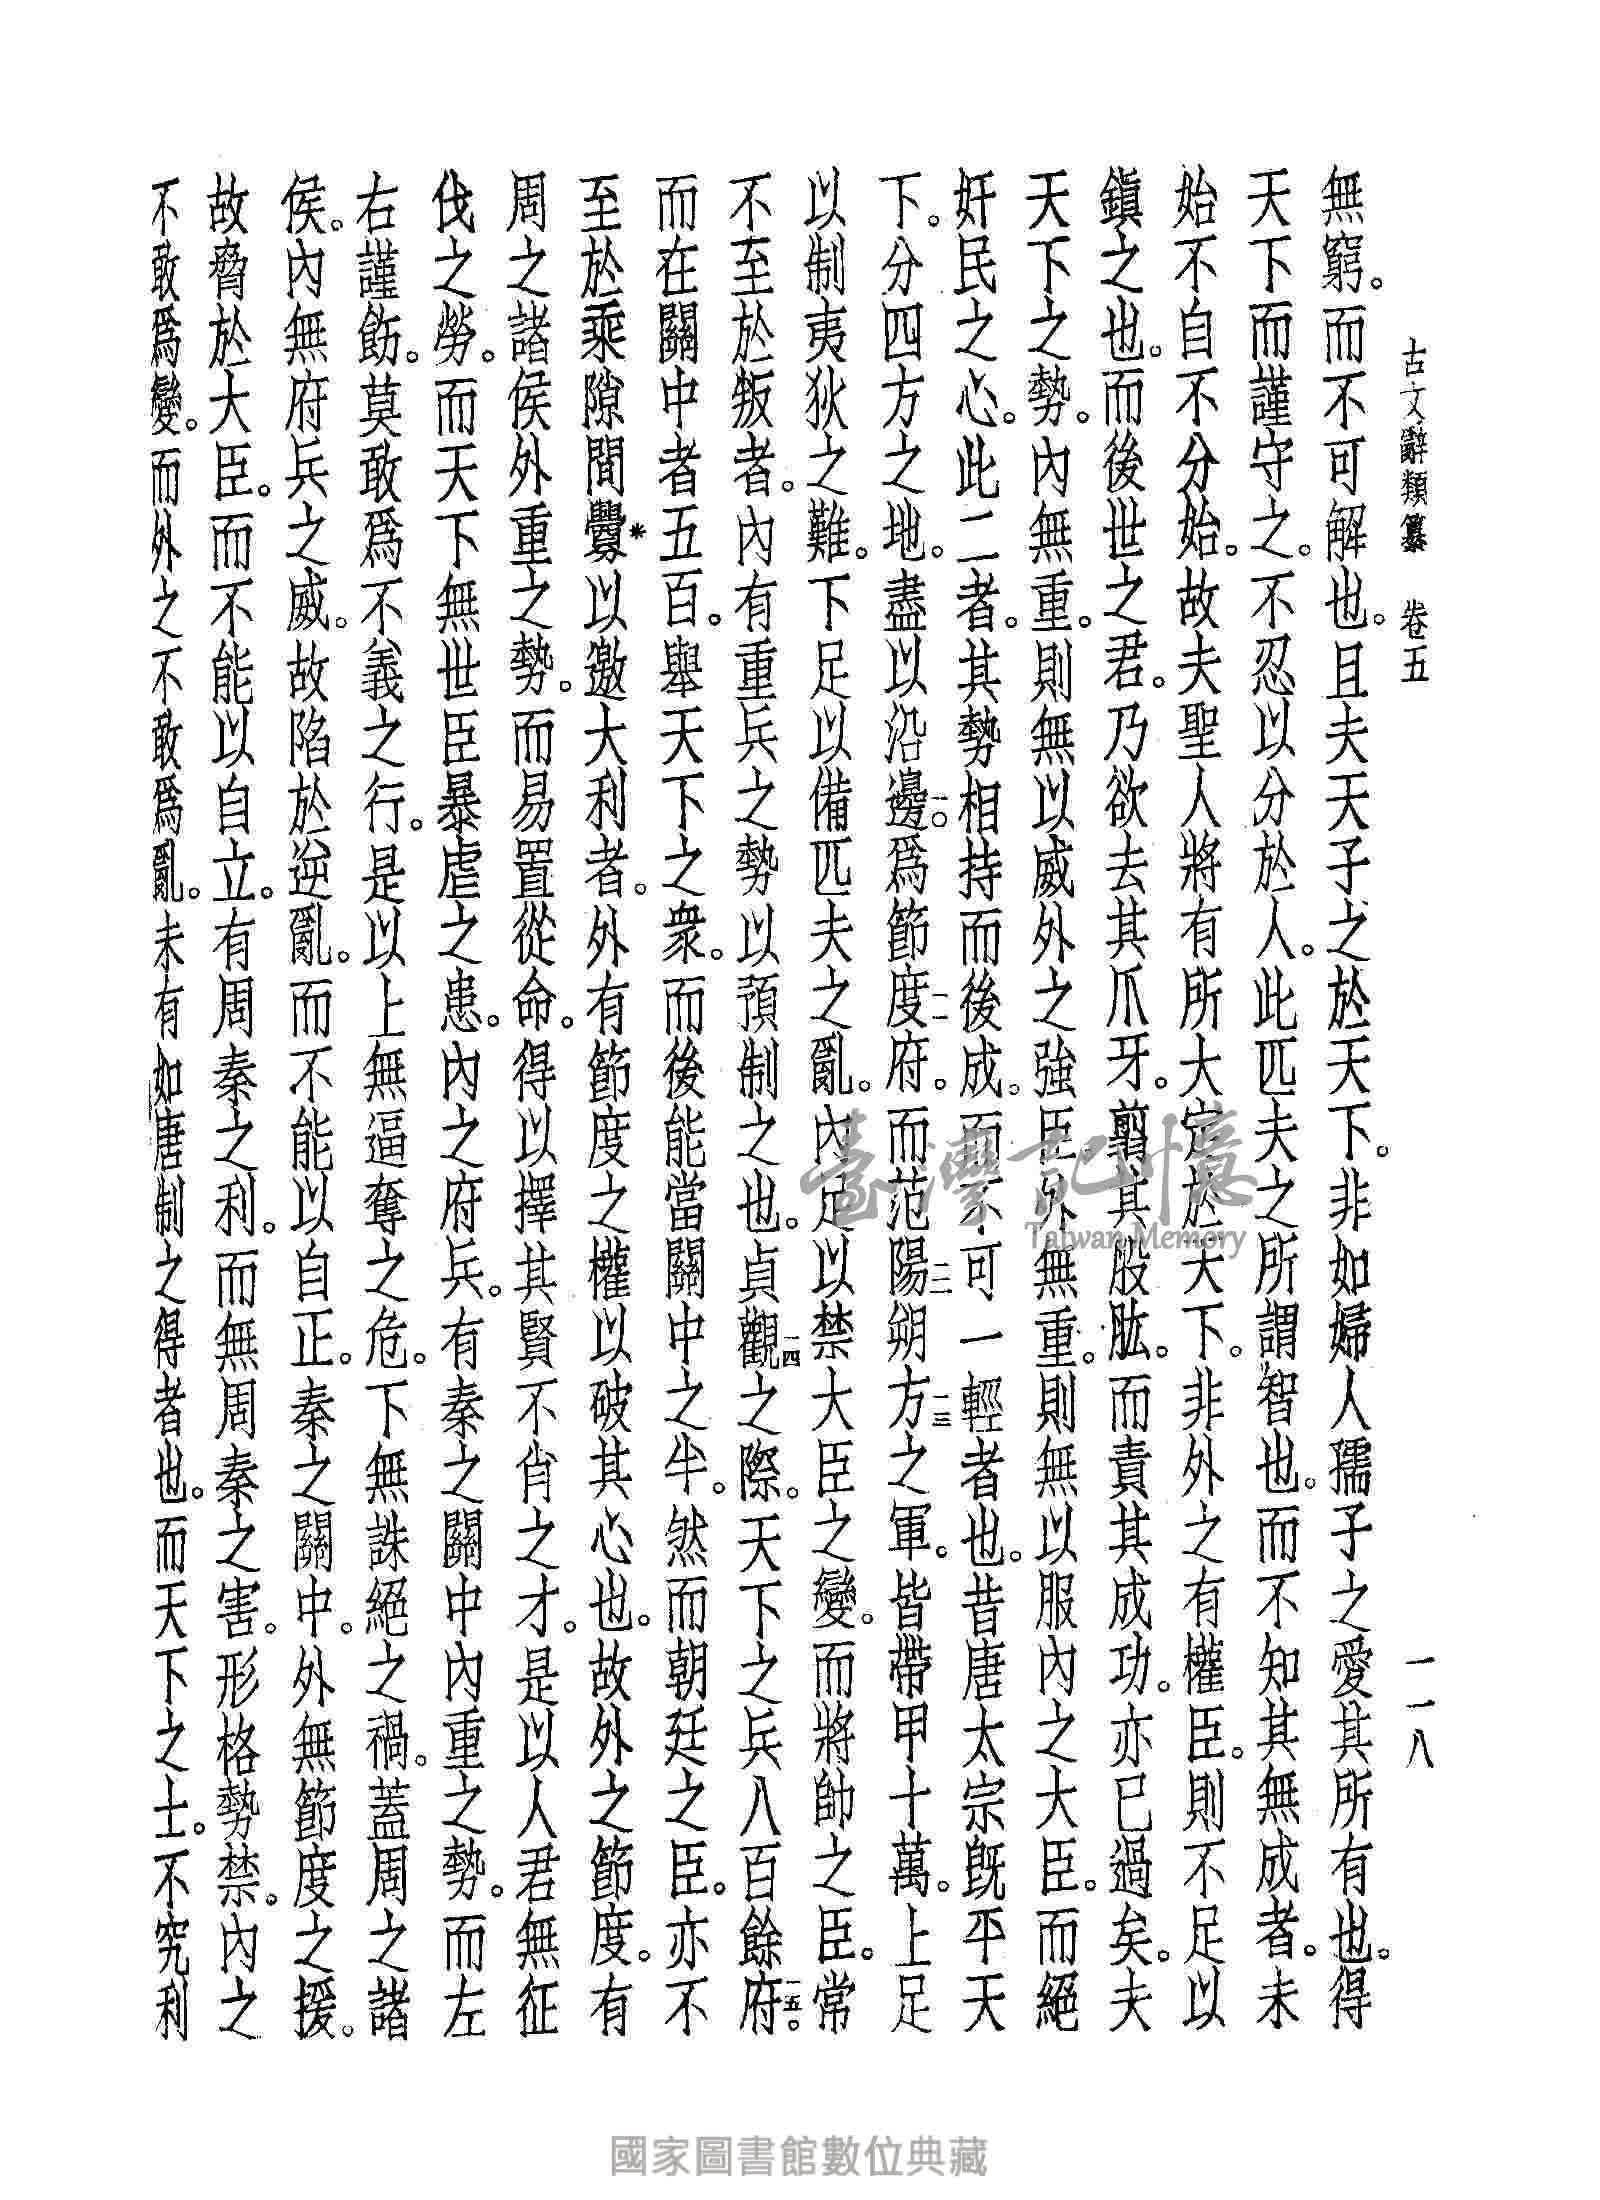 古文辭類纂　卷五　一一八
無窮。而不可解也。且夫天子之於天下。非如婦人孺子之愛其所有也。得
天下而謹守之。不忍以分於人。此匹夫之所謂智也。而不知其無成者。未
始不自不分始。故夫聖人將有所大定於天下。非外之有權臣。則不足以
鎭之也。而後世之君。乃欲去其爪牙。翦其股肱。而責其成功。亦已過矣。夫
天下之勢。內無重。則無以威外之強臣。外無重。則無以服內之大臣。而絕
奸民之心。此二者。其勢相持而後成。而不可一輕者也。昔唐太宗旣平天
下。分四方之地。盡以沿邊一。爲節度一一府。而范陽一二朔方一三之軍。皆帶甲十萬。上足
以制夷狄之難。下足以備匹夫之亂。內足以禁大臣之變。而將帥之臣。常
不至於叛者。內有重兵之勢以預制之也。貞觀一四之際。天下之兵八百餘府一五。
而在關中者五百。舉天下之衆。而後能當關中之半。然而朝廷之臣。亦不
至於乘隙間釁*以邀大利者。外有節度之權以破其心也。故外之節度。有
周之諸侯外重之勢。而易置從命。得以擇其賢不肖之才。是以人君無征
伐之勞。而天下無世臣暴虐之患。內之府兵。有秦之關中內重之勢。而左
右謹飭。莫敢爲不義之行。是以上無逼奪之危。下無誅絕之禍。蓋周之諸
侯。內無府兵之威。故陷於逆亂。而不能以自正。秦之關中。外無節度之援。
故脅於大臣。而不能以自立。有周秦之利。而無周秦之害。形格勢禁。內之
不敢爲變。而外之不敢爲亂。未有如唐制之得者也。而天下之士。不究利
臺灣記憶
Taiwan Memory
國家圖書館數位典藏